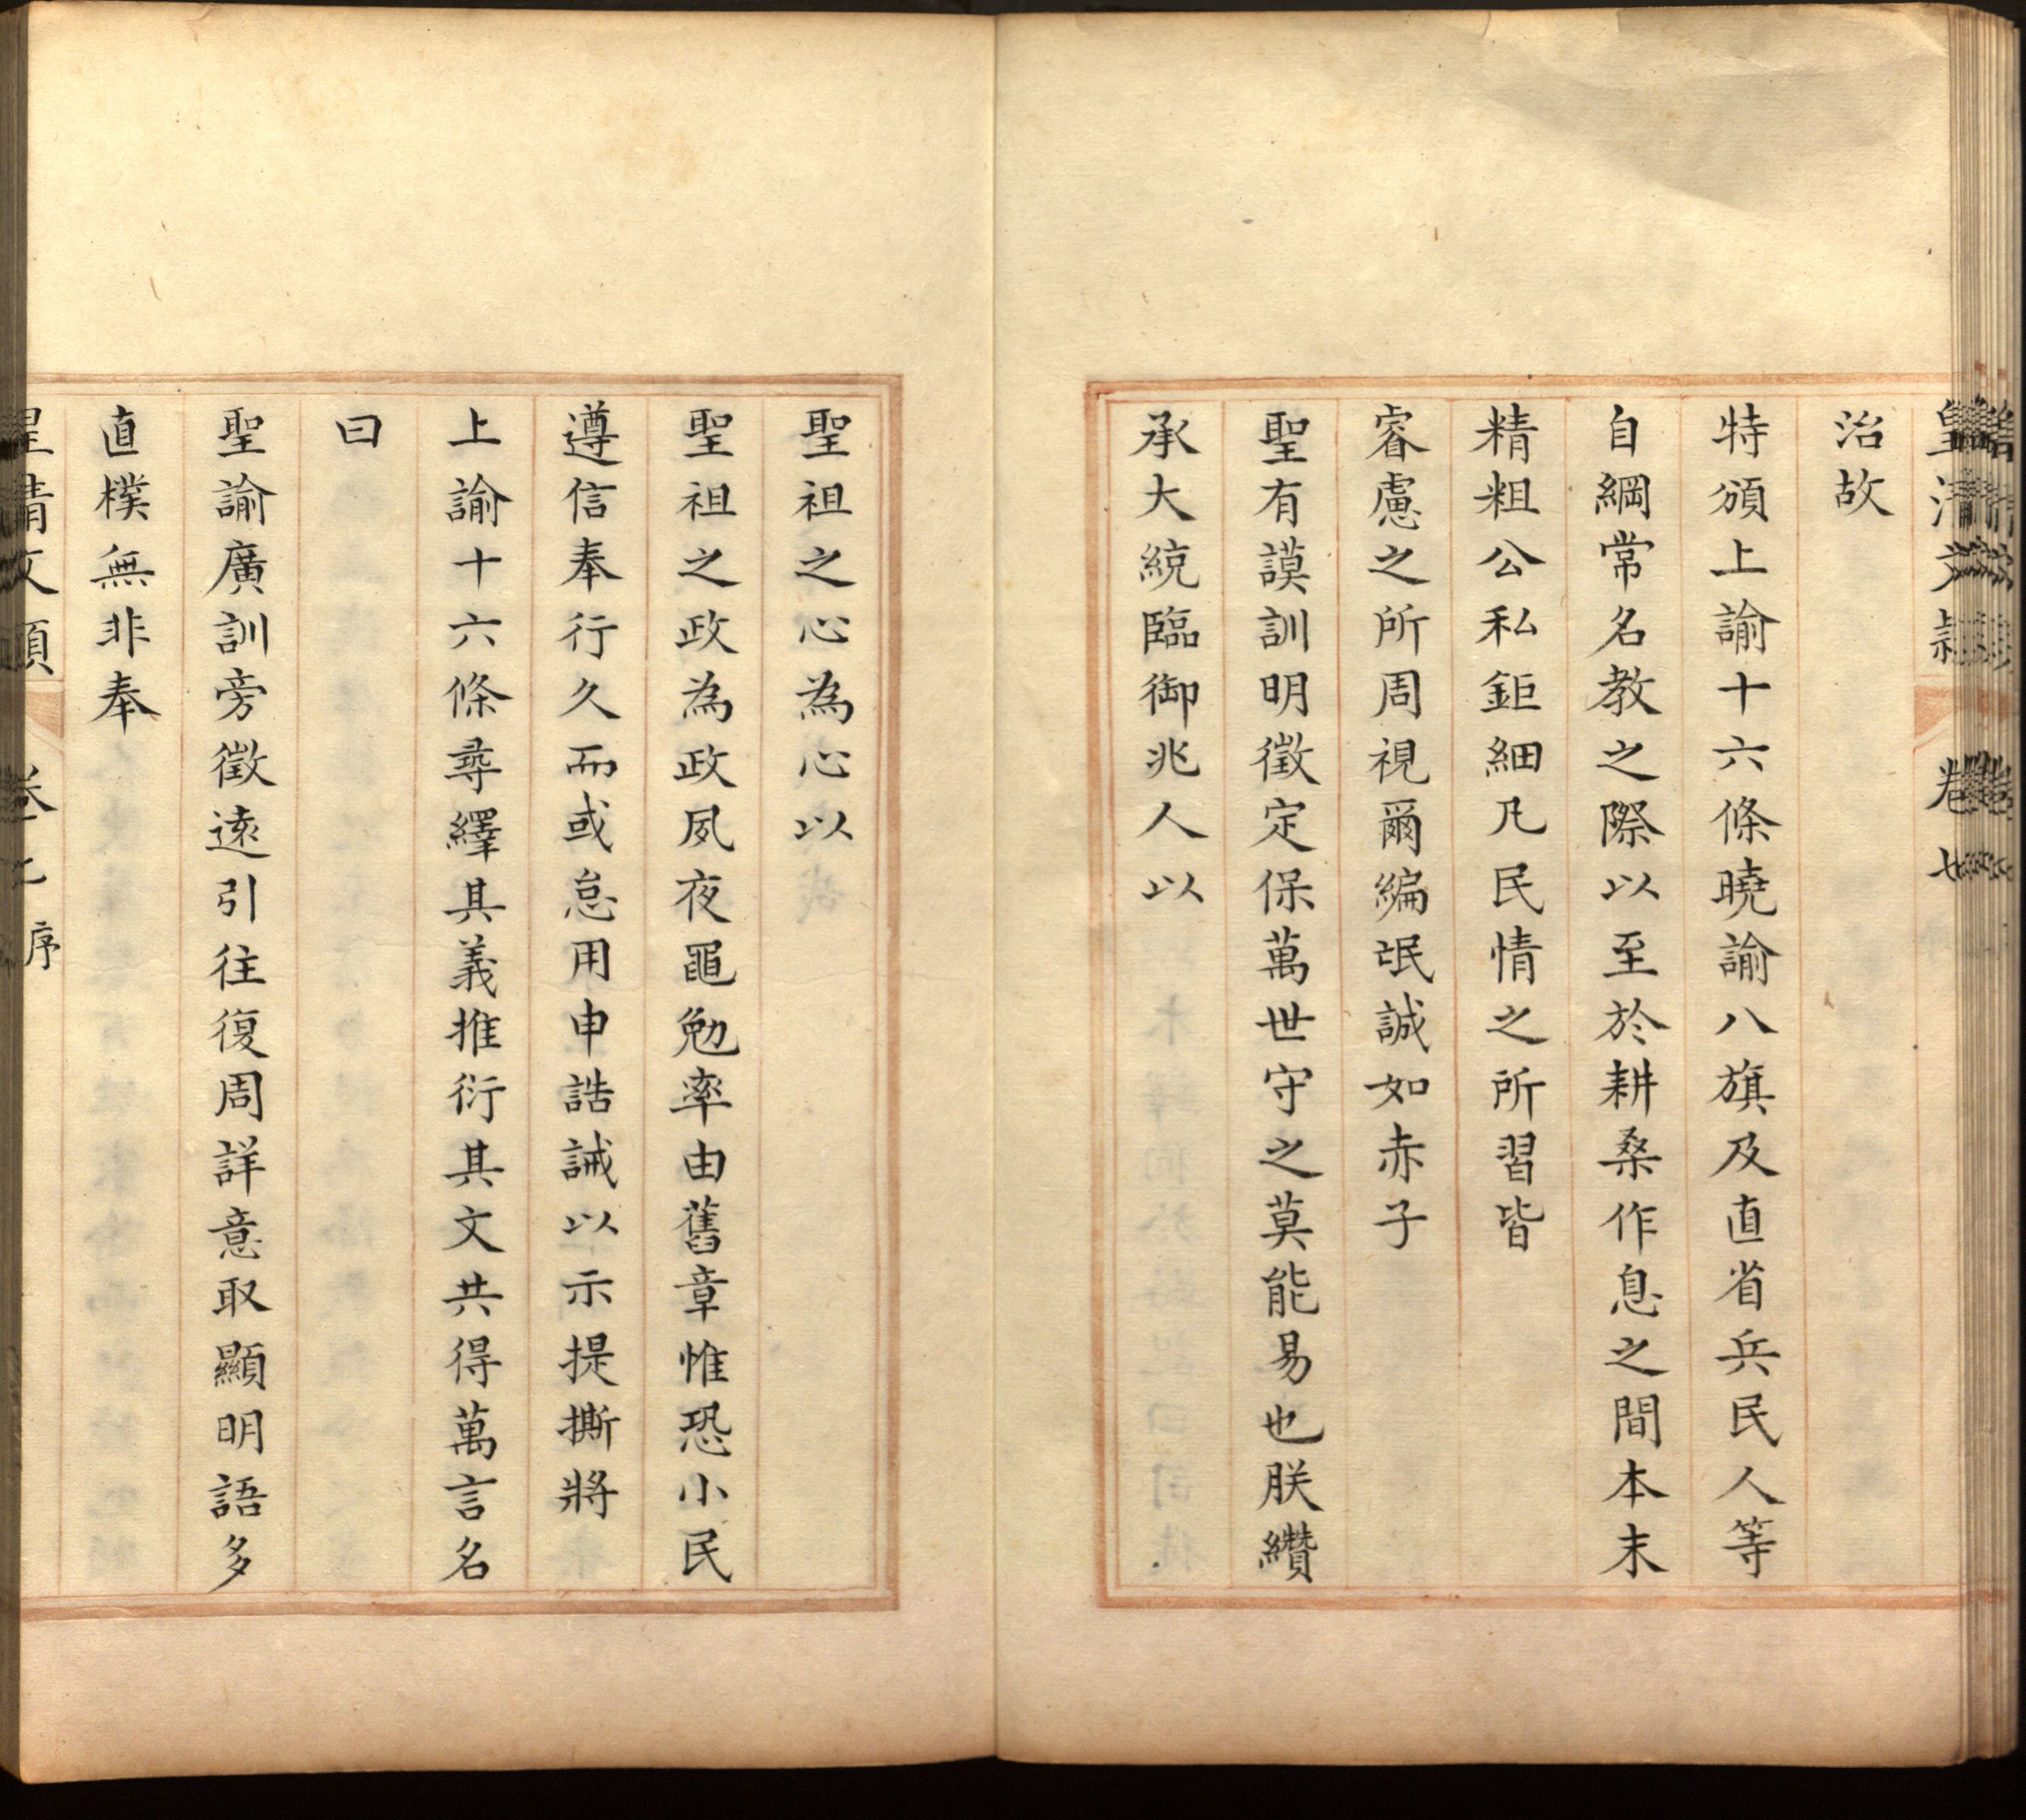 皇清文穎 卷七
治故
特頒上諭十六條曉諭八旗及直省兵民人等
自綱常名教之際以至於耕桑作息之間本末
精粗公私鉅細凡民情之所習皆
睿慮之所周視爾編氓誠如赤子
聖有謨訓明徵定保萬世守之莫能易也朕纘
承大統臨御兆人以
聖祖之心為心以
聖祖之政為政夙夜黽勉率由舊章惟恐小民
遵信奉行久而或怠用申誥誡以示提撕將
上諭十六條尋繹其義推衍其文共得萬言名
曰
聖諭廣訓旁徵遠引往復周詳意取顯明語多
直樸無非奉
皇清文穎 卷七 序